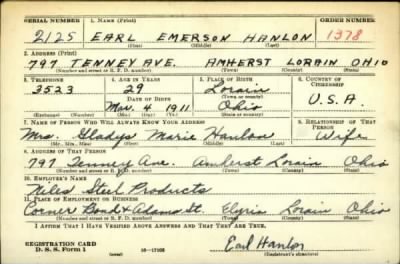 SERIAL NUMBER 1. NAME (Print) ORDER NUMBER
2125 EARL EMERSON HANLON 1378
(First) (Middle) (Last)
2. ADDRESS (Print)
797 TENNEY AVE. AMHERST LORAIN OHIO
(Number and street or R. F. D. number) (Town) (County) (State)
3. TELEPHONE 4. AGE IN YEARS 5. PLACE OF BIRTH 6. COUNTRY OF CITIZENSHIP
3523 29 Lorain
DATE OF BIRTH (Town or county)
Mar. 4 1911 Ohio U.S.A.
(Exchange) (Number) (Mo.) (Day) (Yr.) (State or country)
7. NAME OF PERSON WHO WILL ALWAYS KNOW YOUR ADDRESS 8. RELATIONSHIP OF THAT PERSON
Mrs. Gladys Marie Hanlon Wife
(Mr., Mrs., Miss) (First) (Middle) (Last)
9. ADDRESS OF THAT PERSON
797 Tenney Ave. Amherst Lorain Ohio
(Number and street or R. F. D. number) (Town) (County) (State)
10. EMPLOYER'S NAME
Niles Steel Products
11. PLACE OF EMPLOYMENT OR BUSINESS
Corner Bond & Adams St. Elyria Lorain Ohio
(Number and street or R. F. D. number) (Town) (County) (State)
I AFFIRM THAT I HAVE VERIFIED ABOVE ANSWERS AND THAT THEY ARE TRUE.
REGISTRATION CARD
D. S. S. Form 1 Earl Hanlon
(Registrant's signature)